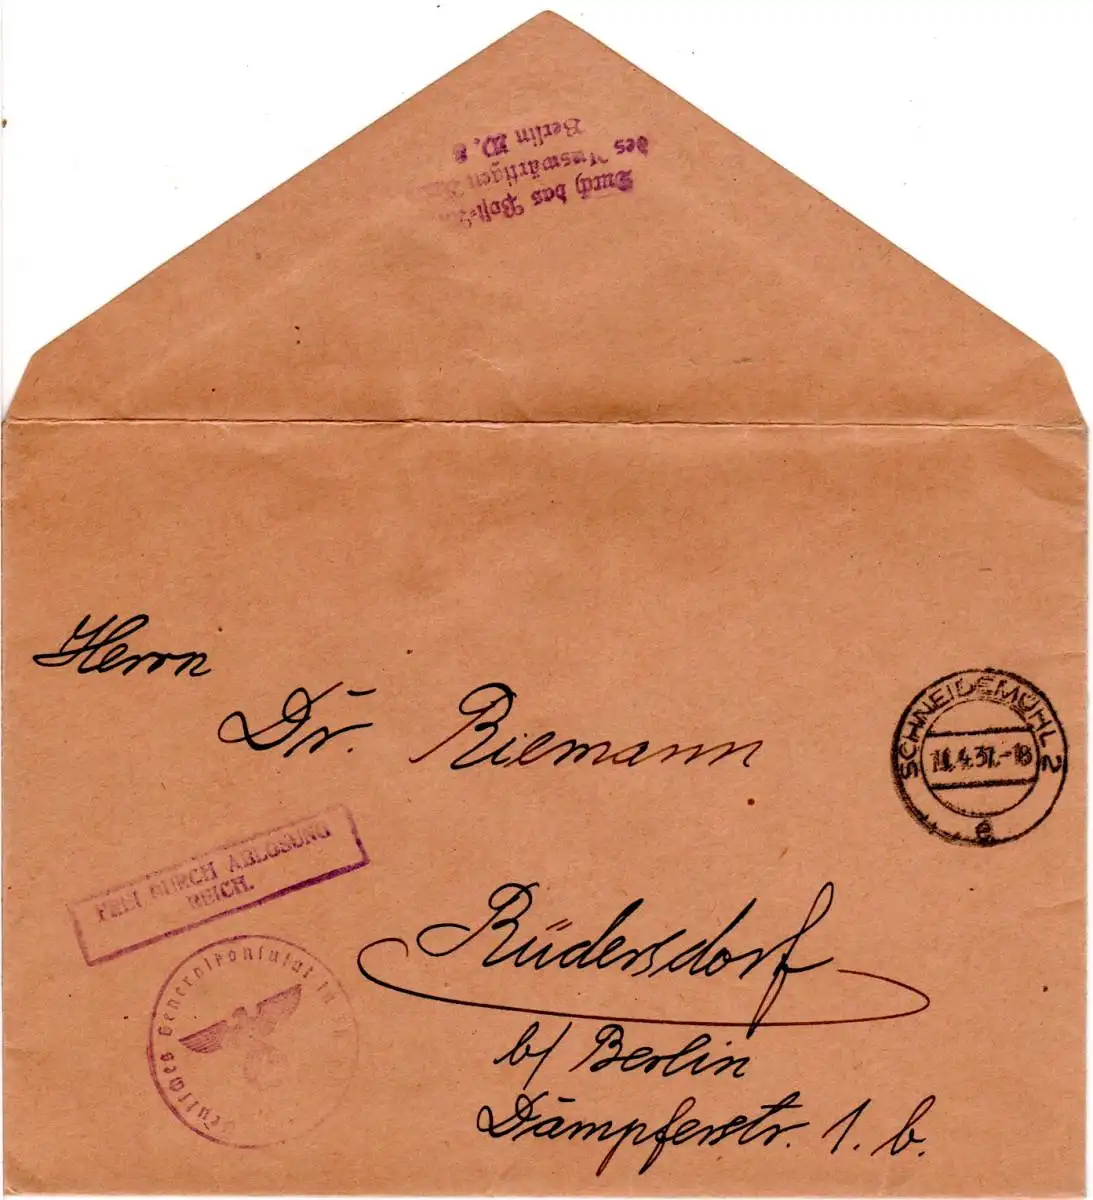 Durch das
des Auswärtigen
Berlin W. 8
Herrn
Dr. Riemann
SCHNEIDEMÜHL 2
14.4.37.-18
e
FREI DURCH ABLÖSUNG
REICH.
Deutsches Generalkonsulat in
Rüdersdorf
b/ Berlin
Dämpferstr. 1. b.